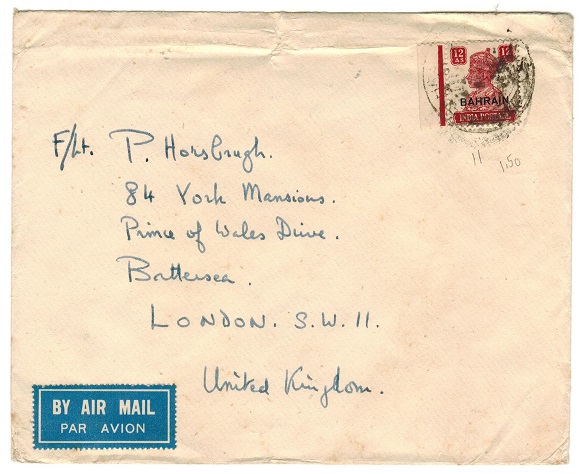 12 AS 12
BAHRAIN
INDIA POSTAGE
11 1.50
F/Lt. P. Horsbrugh.
84 York Mansions.
Prince of Wales Drive.
Battersea.
LONDON. S.W. 11.
United Kingdom.
BY AIR MAIL
PAR AVION